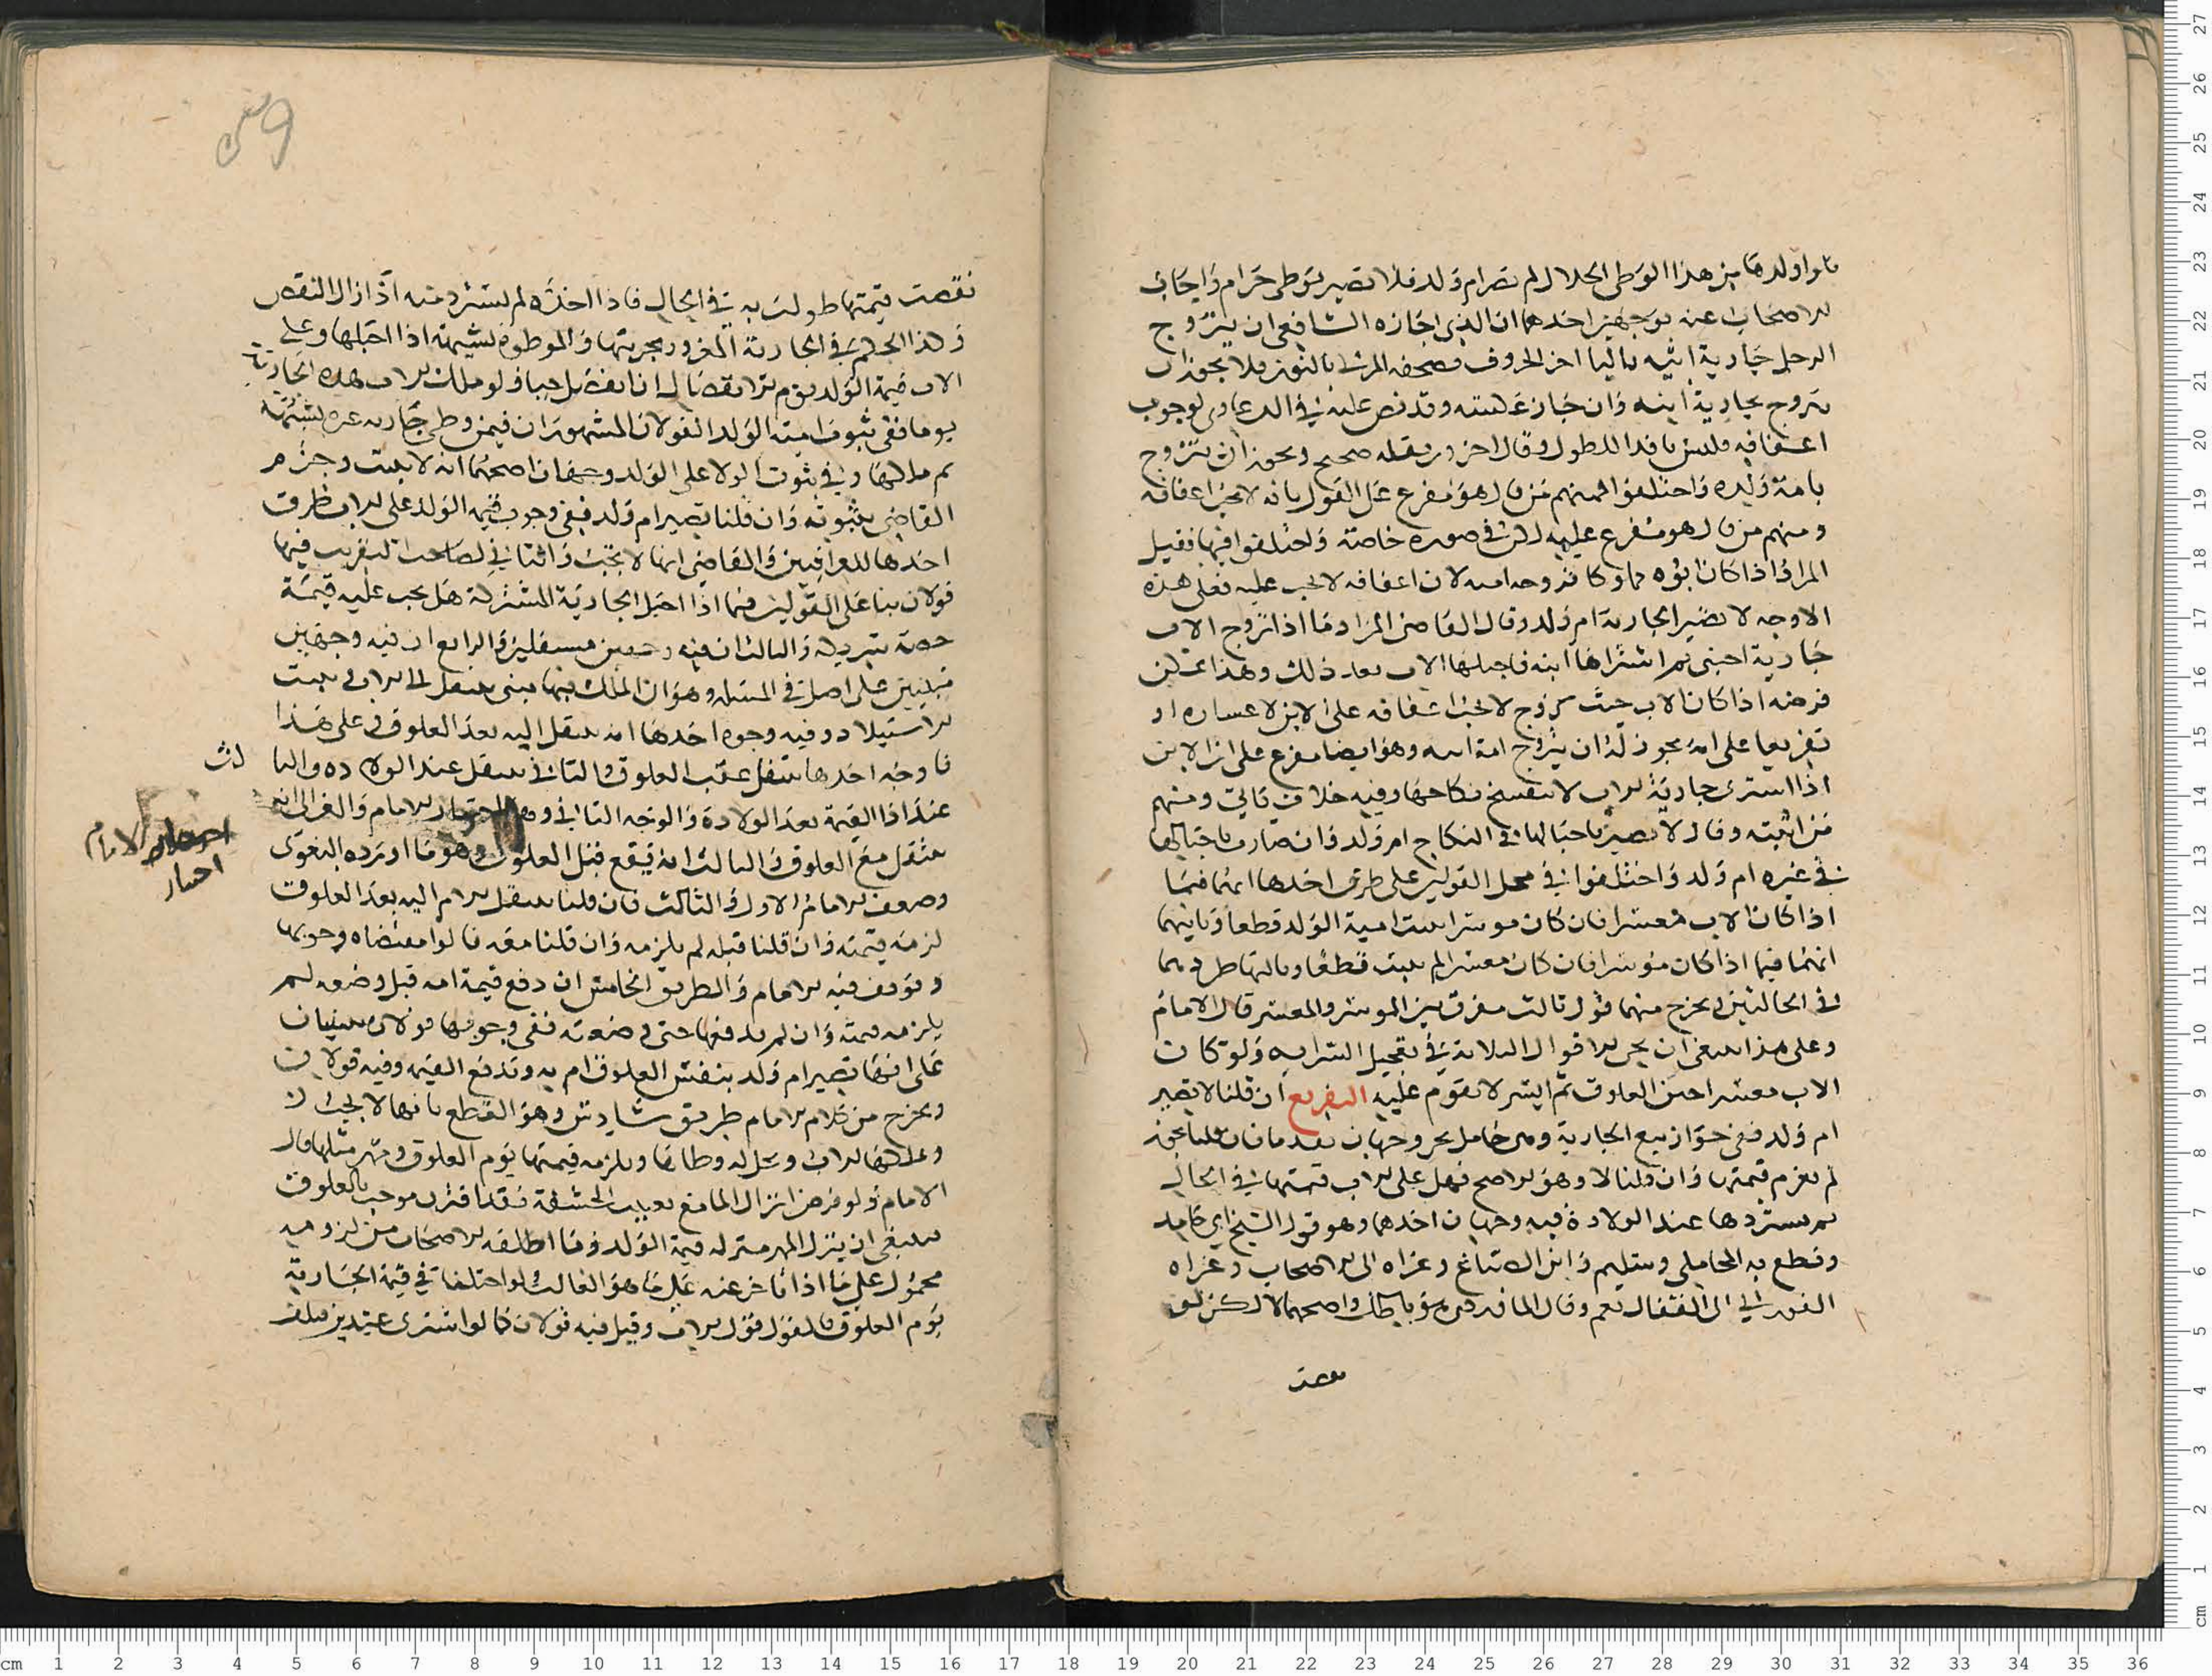 قالوا ولدها من هذا الوطي الحلال لم تصر ام ولد فلان تصير بوطي حرام واجاب
الاصحاب عنه بوجهين احدهما ان الذي اجازه الشافعي ان يتزوج
الرجل جارية ابيه باليا اخر الحروف فصحفه المزني بالنون فلا يجوز ان
يتزوج بجارية ابنه وان جاز عكسه وقد نص عليه في الدعاوي لوجوب
اعفافه فليس فاقدا للطول وقال اخرون نقله صحيح ويجوز ان يتزوج
بامة ولده واختلفوا فمنهم من قال هو مفرع على القول بانه لا يجب اعفافه
ومنهم من قال هو مفرع عليه لكن في صورة خاصة واختلفوا فيها فقيل
المراد اذا كان ابوه مملوكا فزوجه امته لان اعفافه لا يجب عليه فعلى هذه
الاوجه لا تصير الجارية ام ولد وقال القاضي المراد ما اذا تزوج الاب
جارية اجنبي ثم اشتراها ابنه فاحبلها الاب بعد ذلك وهذا يمكن
فرضه اذا كان الاب حيث تزوج لا يجب اعفافه على الابن لاعساره او
تفريعا على انه يجوز له ان يتزوج امة ابنه وهو ايضا مفرع على ان الابن
اذا اشترى جارية الاب لا ينفسخ نكاحها وفيه خلاف ياتي ومنهم
من اثبته وقال لا تصير باحبالها في النكاح ام ولد وان صارت باحبالها
في غيره ام ولد واختلفوا في محل القولين على طرق احدها انهما فيما
اذا كان الاب معسرا فان كان موسرا ثبت امية الولد قطعا وثانيها
انهما فيما اذا كان موسرا فان كان معسرا لم يثبت قطعا وثالثها طردهما
في الحالتين ويخرج منهما قول ثالث مفرق بين الموسر والمعسر قال الامام
وعلى هذا ينبغي ان يجري الاقوال الثلاثة في تعجيل السراية ولو كان
الاب معسرا حين العلوق ثم ايسر لا تقوم عليه التفريع ان قلنا لا تصير
ام ولد ففي جواز بيع الجارية وهي حامل بحر وجهان تقدما فان قلنا يجوز
لم يغرم قيمتها وان قلنا لا وهو الاصح فهل على الاب قيمتها في الحال
ثم يستردها عند الولادة فيه وجهان احدهما وهو قول الشيخ ابي حامد
وقطع به المحاملي وسليم وابن الصباغ وعزاه الى الاصحاب وعزاه
الفوراني الى القفال نعم وقال الماوردي هو باطل واصحهما لا لكن لو
نقصت
نقصت قيمتها طولب به في الحال فاذا اخذه لم يسترد منه اذا زال النقص
وكذا الحكم في الجارية المغرور بحريتها والموطوة بشبهة اذا احبلها وعلى
الاب قيمة الولد يوم الانفصال ان انفصل حيا ولو ملك الاب هذه الجارية
يوما ففي ثبوت امية الولد القولان المشهوران فيمن وطي جارية غيره بشبهة
ثم ملكها وفي ثبوت الولا على الولد وجهان اصحهما انه لا يثبت وجزم
القاضي بثبوته وان قلنا تصير ام ولد ففي وجوب قيمة الولد على الاب طرق
احدها للعراقيين والقاضي انها لا تجب والثاني لصاحب التقريب فيها
قولان بنا على القولين فيما اذا احبل الجارية المشتركة هل يجب عليه قيمة
حصة شريكه والثالث ان فيه وجهين مستقلين والرابع ان فيه وجهين
مبنيين على اصل في المسئلة وهو ان الملك فيها متى ينتقل الى الاب ليثبت
الاستيلاد وفيه وجوه احدها انه ينتقل اليه بعد العلوق وعلى هذا
فاوجه احدها ينتقل عقب العلوق والثاني ينتقل عند الولادة والثا لث
عند اذا القيمة بعد الولادة والوجه الثاني وهو اختيار الامام والغزالي انه
اختيار الامام
اختيار
ينتقل مع العلوق والثالث انه يقع قبل العلوق وهو ما اورده البغوي
وضعف الامام الاول والثالث فان قلنا ينتقل الام اليه بعد العلوق
لزمه قيمته وان قلنا قبله لم يلزمه وان قلنا معه قالوا مقتضاه وجوبها
وتوقف فيه الامام والطريق الخامس ان دفع قيمة امه قبل وضعه لم
يلزمه قيمته وان لم يدفعها حتى وضعته ففي وجوبها قولان مبنيان
على انها تصير ام ولد بنفس العلوق ام به وبدفع القيمة وفيه قولان
ويخرج من كلام الامام طريق سادس وهو القطع بانها لا تجب
وعلكها الاب ويحل له وطاها ويلزمه قيمتها يوم العلوق ومهر مثلها قال
الامام ولو فرض انزال الما مع تغييب الحشفة فقد اقترن موجب بالعلوق
فينبغي ان ينزل المهر منزلة قيمة الولد وما اطلقه الاصحاب من لزومه
محمول على ما اذا تاخر عنه على ما هو الغالب ولو اختلفا في قيمة الجارية
يوم العلوق فالقول قول الاب وقيل فيه قولان كما لو اشترى عبدين فتلف